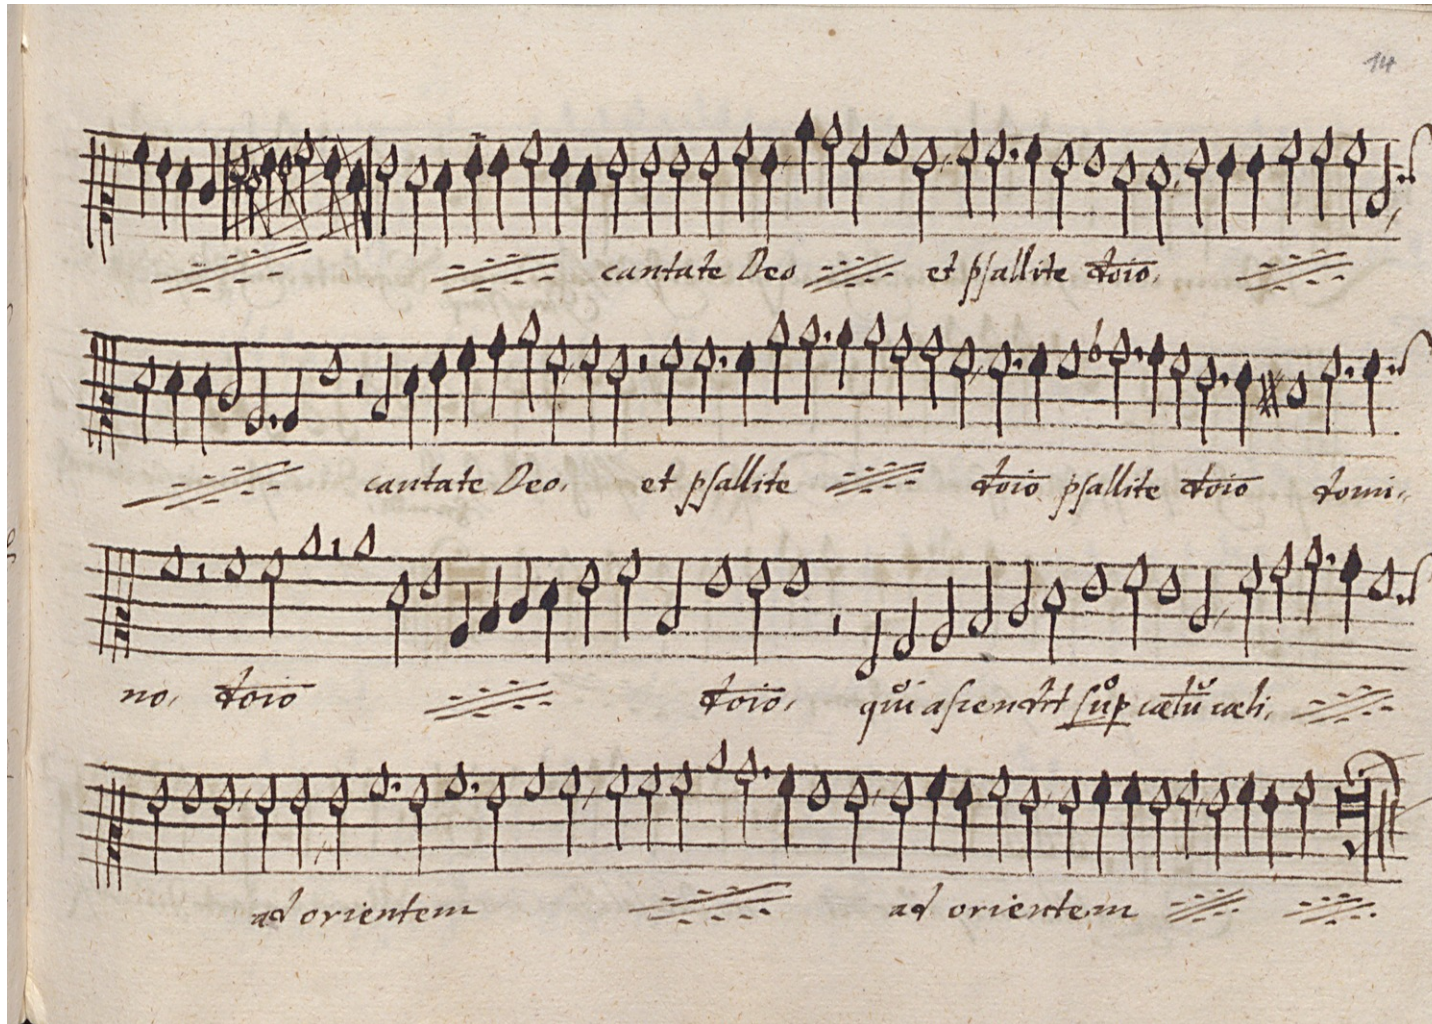 14
cantate Deo et psallite dōio,
cantate Deo, et psallite dōio psallite dōio domi-
no, dōio dōio, qui ascendit sup cælū cæli,
ad orientem ad orientem